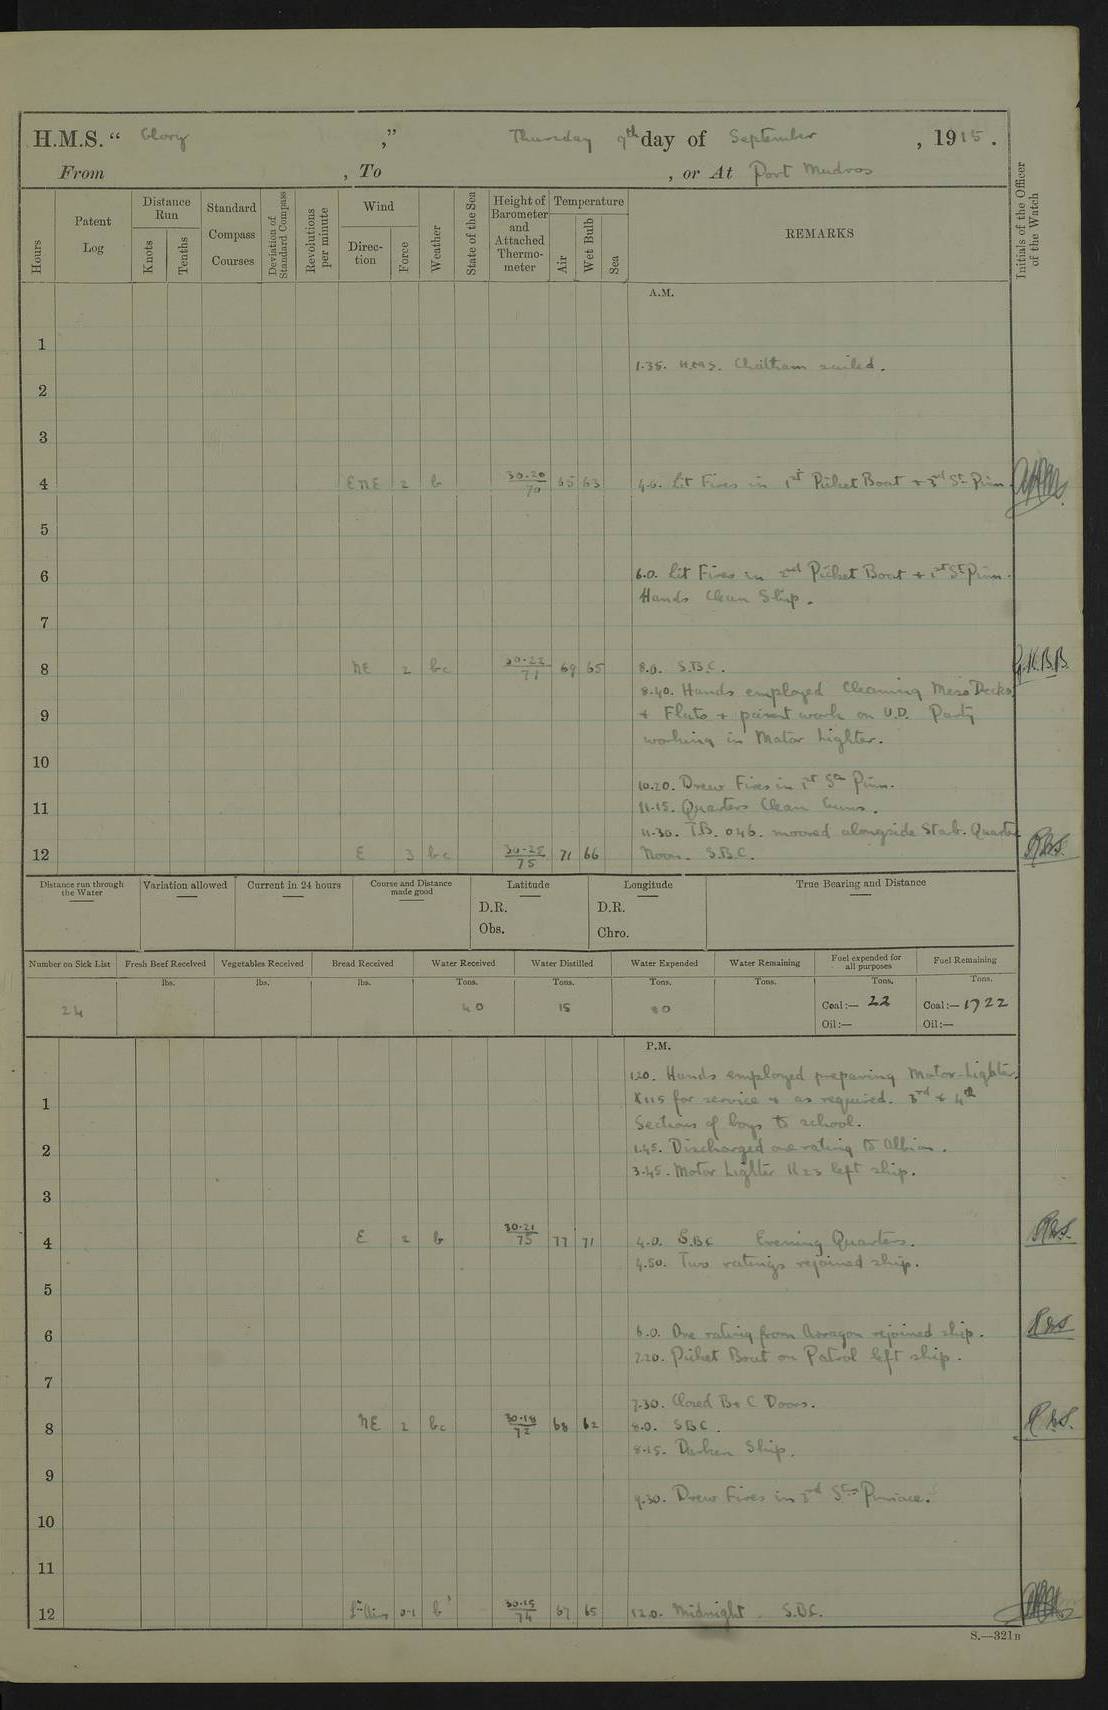 H.M.S. “ Glory ,” Thursday 9th day of September , 1915.
From , To , or At Port Mudros
Hours
Patent Log
Distance Run
Knots
Tenths
Standard Compass Courses
Deviation of Standard Compass
Revolutions per minute
Wind
Direc-tion
Force
Weather
State of the Sea
Height of Barometer and Attached Thermo-meter
Temperature
Air
Wet Bulb
Sea
REMARKS
Initials of the Officer of the Watch
A.M.
1
1.35. H.M.S. Chatham sailed.
2
3
4 ENE 2 b 30.20/70 65 63 4.0. Lit Fires in 1st Picket Boat + 3rd St Pinn.
5
6 6.0. Lit Fires in 2nd Picket Boat + 1st St Pinn.
Hands Clean Ship.
7
8 NE 2 bc 30.22/71 68 65 8.0. S.B.C. G.K.B.B.
8.40. Hands employed Cleaning Mess Decks
9 + Flats + paint work on U.D. Party
working in Motor Lighter.
10
10.20. Drew Fires in 1st Sm Pinn.
11 11.15. Quarters Clean Guns.
11.30. T.B. 046. moored alongside Starb. Quarter
12 E 3 bc 30.25/75 71 66 Noon. S.B.C.
Distance run through the Water
Variation allowed
Current in 24 hours
Course and Distance made good
Latitude
D.R.
Obs.
Longitude
D.R.
Chro.
True Bearing and Distance
Number on Sick List
Fresh Beef Received
Vegetables Received
Bread Received
Water Received
Water Distilled
Water Expended
Water Remaining
Fuel expended for all purposes
Fuel Remaining
lbs. lbs. lbs. Tons. Tons. Tons. Tons. Tons. Tons.
24 40 15 80 Coal:— 22 Coal:— 1722
Oil:— Oil:—
P.M.
1.20. Hands employed preparing Motor-Lighter
1 K115 for service + as required. 3rd + 4th
Sections of boys to school.
2 1.45. Discharged one rating to Albion.
3.45. Motor Lighter K23 left ship.
3
4 E 2 b 30.21/75 77 71 4.0. S.B.C Evening Quarters.
4.50. Two ratings rejoined ship.
5
6 6.0. One rating from Aragon rejoined ship.
7.20. Picket Boat on Patrol left ship.
7
7.30. Closed B + C Doors.
8 NE 2 bc 30.18/72 68 62 8.0. SBC.
8.15. Darken Ship.
9
9.30. Drew Fires in 3rd Stm Pinnace.
10
11
12 Lt Airs 0-1 b 30.15/74 67 65 12.0. Midnight. S.B.C.
S.—321B